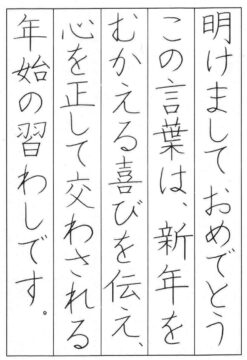 明けましておめでとう
この言葉は、新年を
むかえる喜びを伝え、
心を正して交わされる
年始の習わしです。